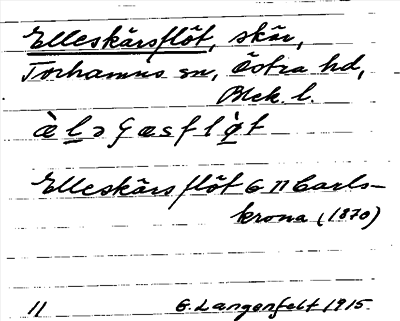 Elleskärsflöt, skär,
Torhamns sn, Östra hd,
Blek. l.
Elleskärsflöt G 11 Carls-
krona (1870)
11 G. Langenfelt 1915.